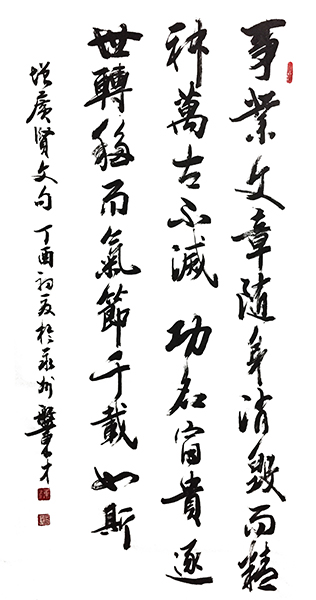 事業文章隨身消毀而精
神萬古不滅功名富貴逐
世轉移而氣節千載如斯
增廣賢文句丁酉初夏於